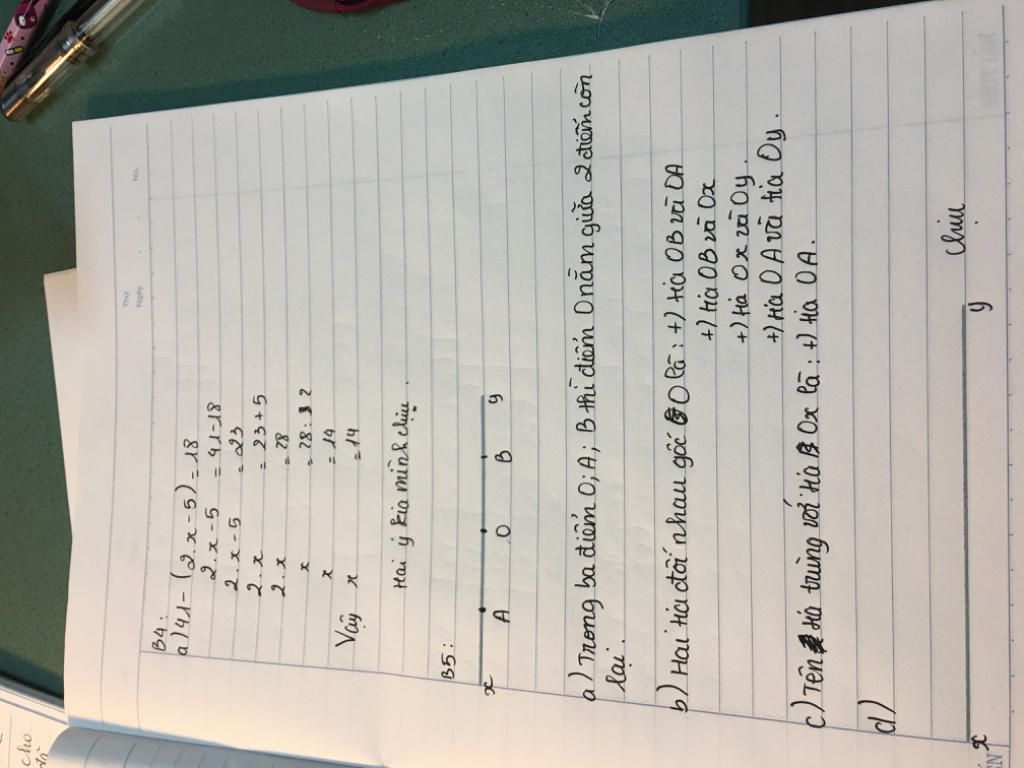 Thứ
Ngày
No.
B4:
a) 41 - (2.x - 5) = 18
2.x - 5 = 41 - 18
2.x - 5 = 23
2.x = 23 + 5
2.x = 28
x = 28 : 2
x = 14
Vậy x = 14
Hai ý kia mình chịu.
B5:
x A O B y
a) Trong ba điểm O; A; B thì điểm O nằm giữa 2 điểm còn
lại.
b) Hai tia đối nhau gốc O là: +) tia OB và OA
+) tia OB và Ox
+) tia Ox và Oy.
+) tia OA và tia Oy.
c) Tên tia trùng với tia Ox là: +) tia OA.
d)
Chịu
x y
cho